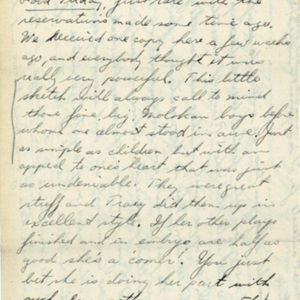 Good Friday, just
reservations made some time ago.
We received one copy here a few weeks
ago, and everybody thought it was
really very powerful. This little
sketch will always call to mind
those fine, big, Molokan boys before
whom one almost stood in awe, just
as simple as children but with an
appeal to one's heart that was just
as undeniable. They were great
stuff and Tracy did them up in
excellent style. If her other plays
finished and in embryo are half as
good she's a comer. You just
bet she is doing her part with